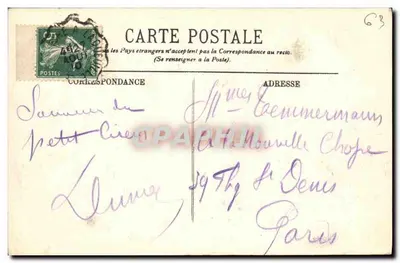 63
CARTE POSTALE
les Pays étrangers n'acceptent pas la Correspondance au recto
(Se renseigner à la Poste).
CORRESPONDANCE
ADRESSE
Souvenir du
petit
Mmes Temmermans
A la Nouvelle Chope
39 Fbg St Denis
Paris
CPARAMA